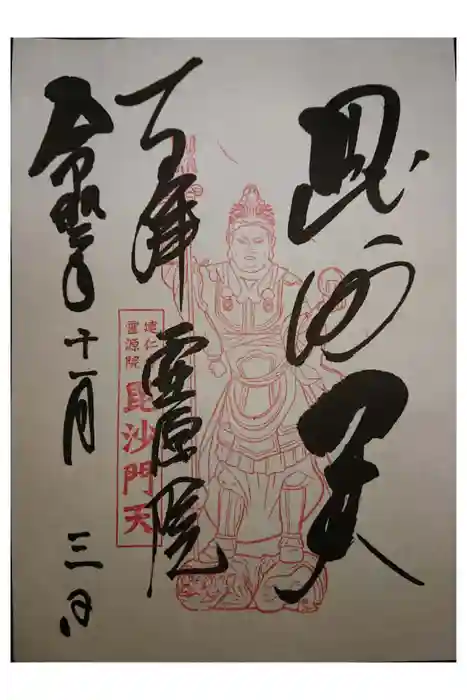 毘沙門天
霊源院
令和 年 十一月 三日
建仁
靈源院
毘沙門天